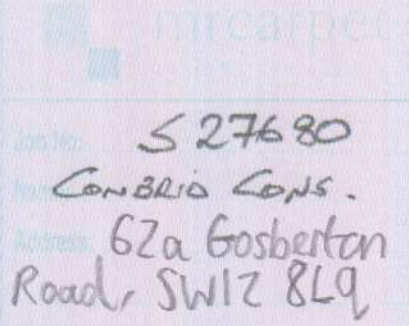 mrcarpet
Job No: S 27680
Name: CONBRIO CONS.
Address: 62a Gosberton
Road, SW12 8LQ